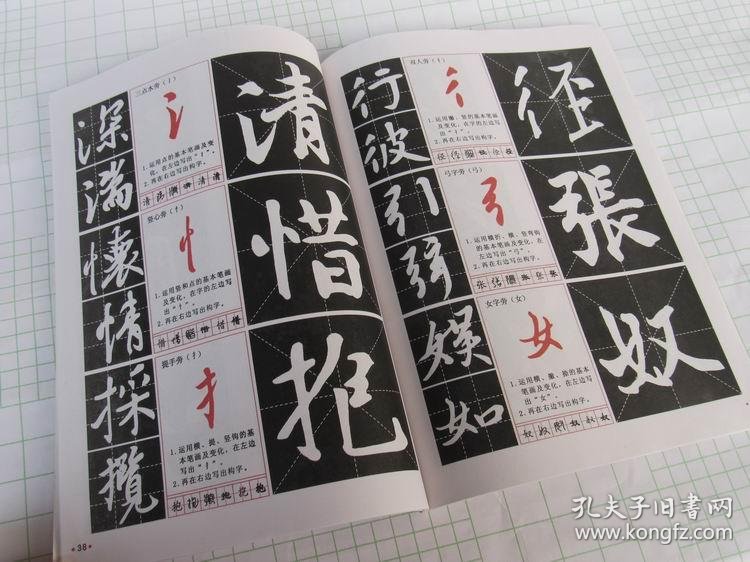 深
湍
懷
情
採
攬
三点水旁（氵）
氵
1.运用点的基本笔画及变
化，在字的左边写
出“氵”。
2.再在右边写出构字。
清
竖心旁（忄）
忄
1.运用竖和点的基本笔画
及变化，在字的左边写出
“忄”。
2.再在右边写出构字。
惜
提手旁（扌）
扌
1.运用横、提、竖钩的基
本笔画及变化，在左边
写出“扌”。
2.再在右边写出构字。
抱
*38*
行
彼
引
弦
娱
如
双人旁（彳）
彳
1.运用撇、竖的基本笔画
及变化，在字的左边写
出“彳”。
2.再在右边写出构字。
径
弓字旁（弓）
弓
1.运用横折、横、竖弯钩
的基本笔画及变化，在
左边写出“弓”。
2.再在右边写出构字。
張
女字旁（女）
女
1.运用横、撇、捺的基本
笔画及变化，在左边写
出“女”。
2.再在右边写出构字。
奴
孔夫子旧书网
www.kongfz.com